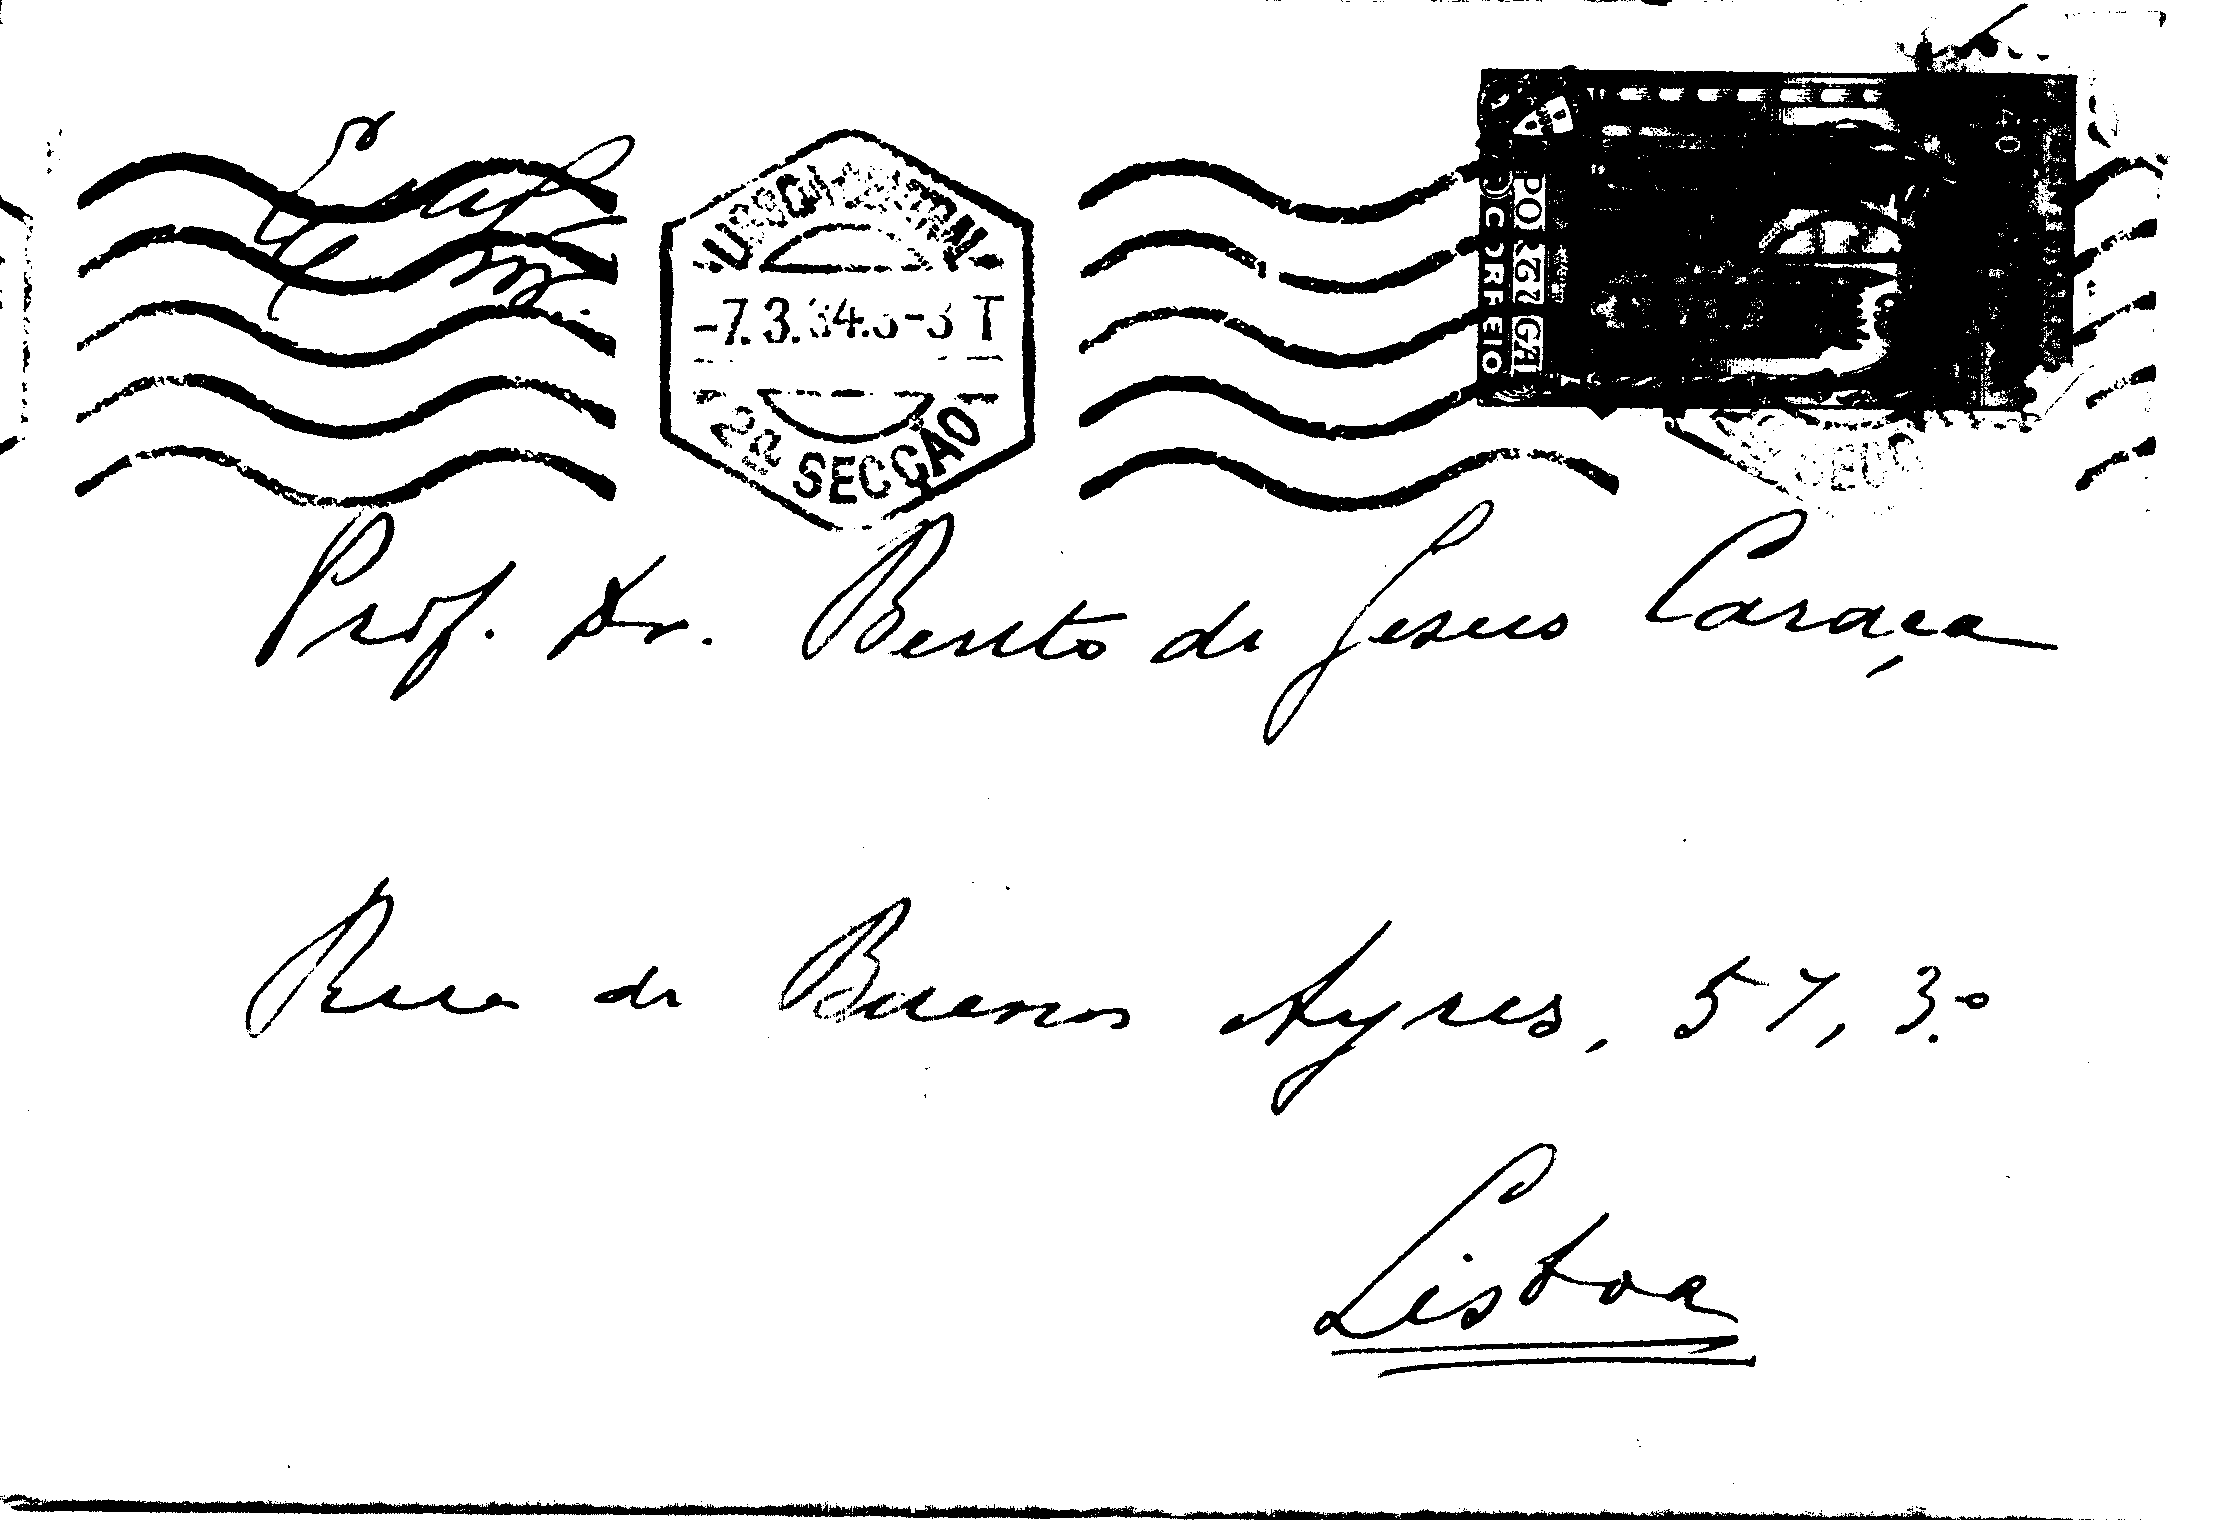 Exmo Snr.
LISBOA CENTRAL
-7.3.34.3-3 T
2ª SECÇÃO
PORTUGAL
CORREIO
40
Prof. Dr. Bento de Jesus Caraça
Rua de Buenos Ayres, 57, 3.º
Lisboa